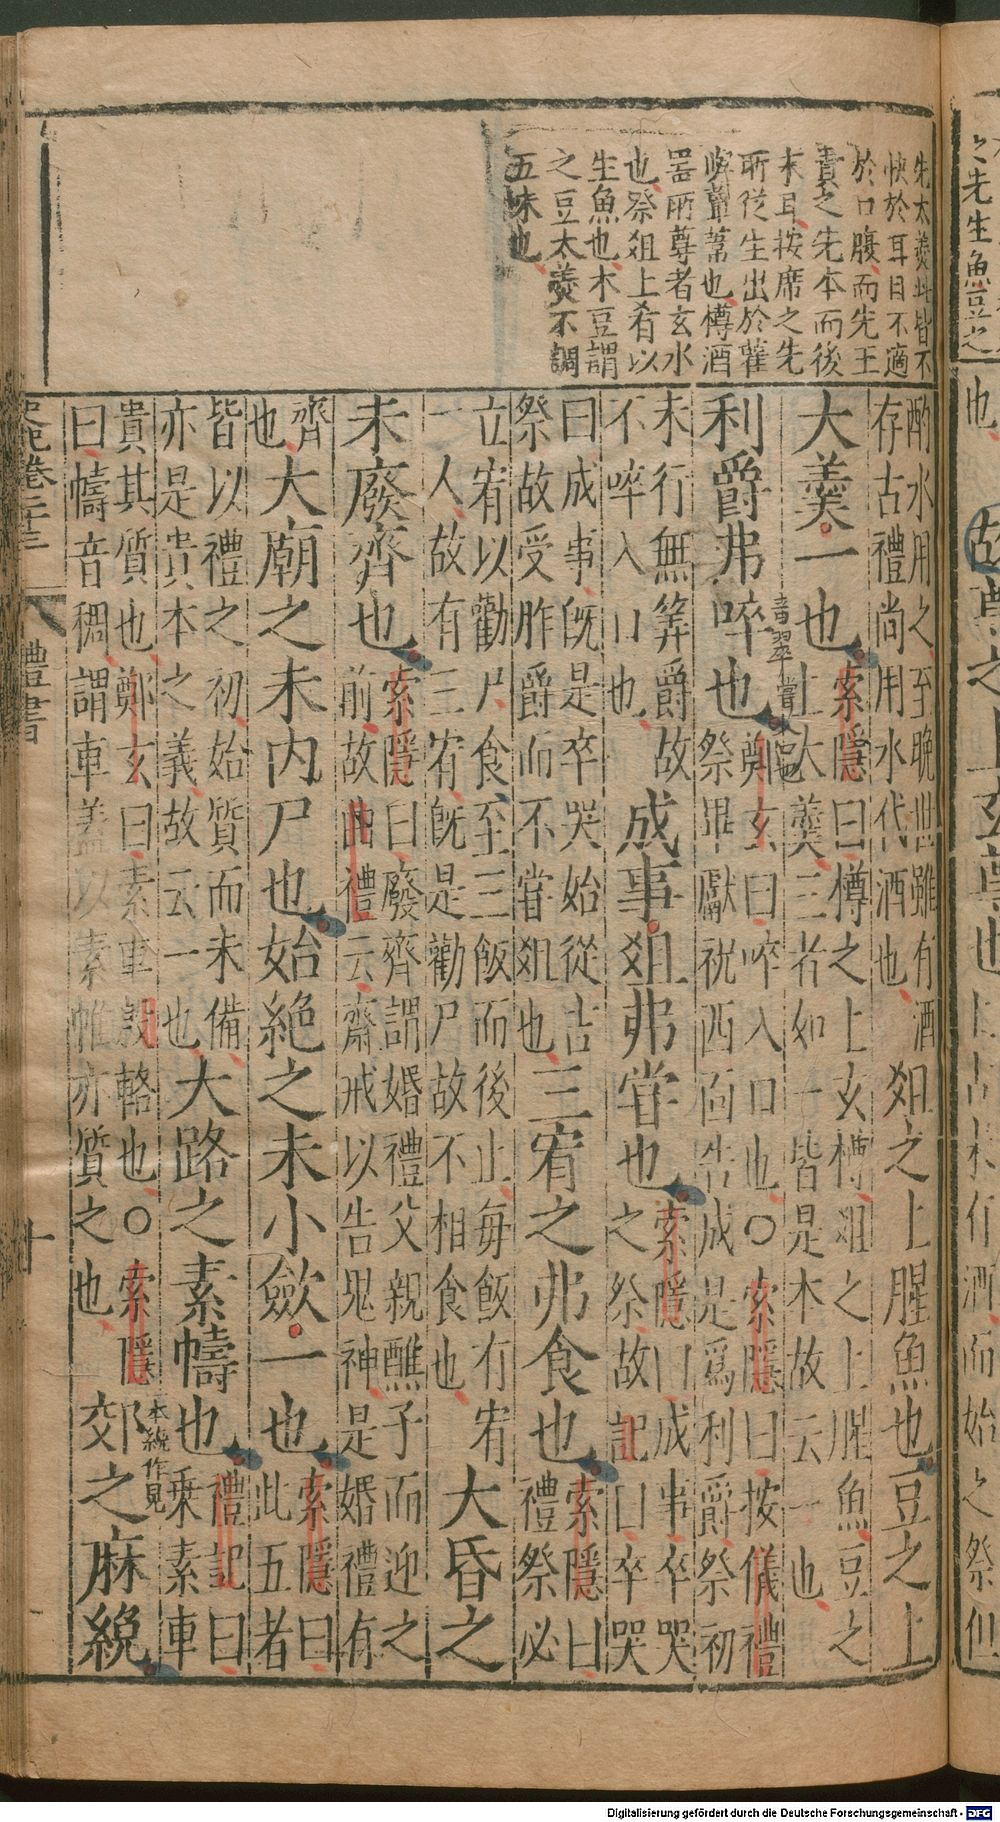 之先生魚豆之
也
先太羹并皆不
快於耳目不適
於口腹而先王
貴之先本而後
末耳按席之先
所從生出於雚
蕈藁也樽酒
器兩尊者玄水
也祭俎上肴以
生魚也木豆謂
之豆太羹不調
五味也
酌水用之至晚世雖有酒
存古禮尚用水代酒也
俎之上腥魚也豆之上
大羹一也
索隱曰樽之上玄樽俎之上腥魚豆之
上大羹三者如一皆是本故云一也
利爵弗啐也
音翠嘗入口也
鄭玄曰啐入口也○索隱曰按儀禮
祭畢獻祝西向告成是爲利爵祭初
未行無筭爵故
不啐入口也
成事俎弗甞也
索隱曰成事卒哭
之祭故記曰卒哭
曰成事旣是卒哭始從吉
祭故受胙爵而不甞俎也
三宥之弗食也
索隱曰
禮祭必
立宥以勸尸食至三飯而後止每飯有宥
一人故有三宥旣是勸尸故不相食也
大昏之
未廢齊也
索隱曰廢齊謂婚禮父親醮子而迎之
前故曲禮云齋戒以告鬼神是婚禮有
齊
也
大廟之未内尸也始絶之未小斂一也
索隱曰
此五者
皆以禮之初始質而未備
亦是貴本之義故云一也
大路之素幬也
禮記曰
乗素車
貴其質也鄭玄曰素車殷輅也○索隱
曰幬音稠謂車蓋以素帷亦質之也
一本絻作冕
郊之麻絻
史記卷二十三 禮書 十
Digitalisierung gefördert durch die Deutsche Forschungsgemeinschaft - DFG